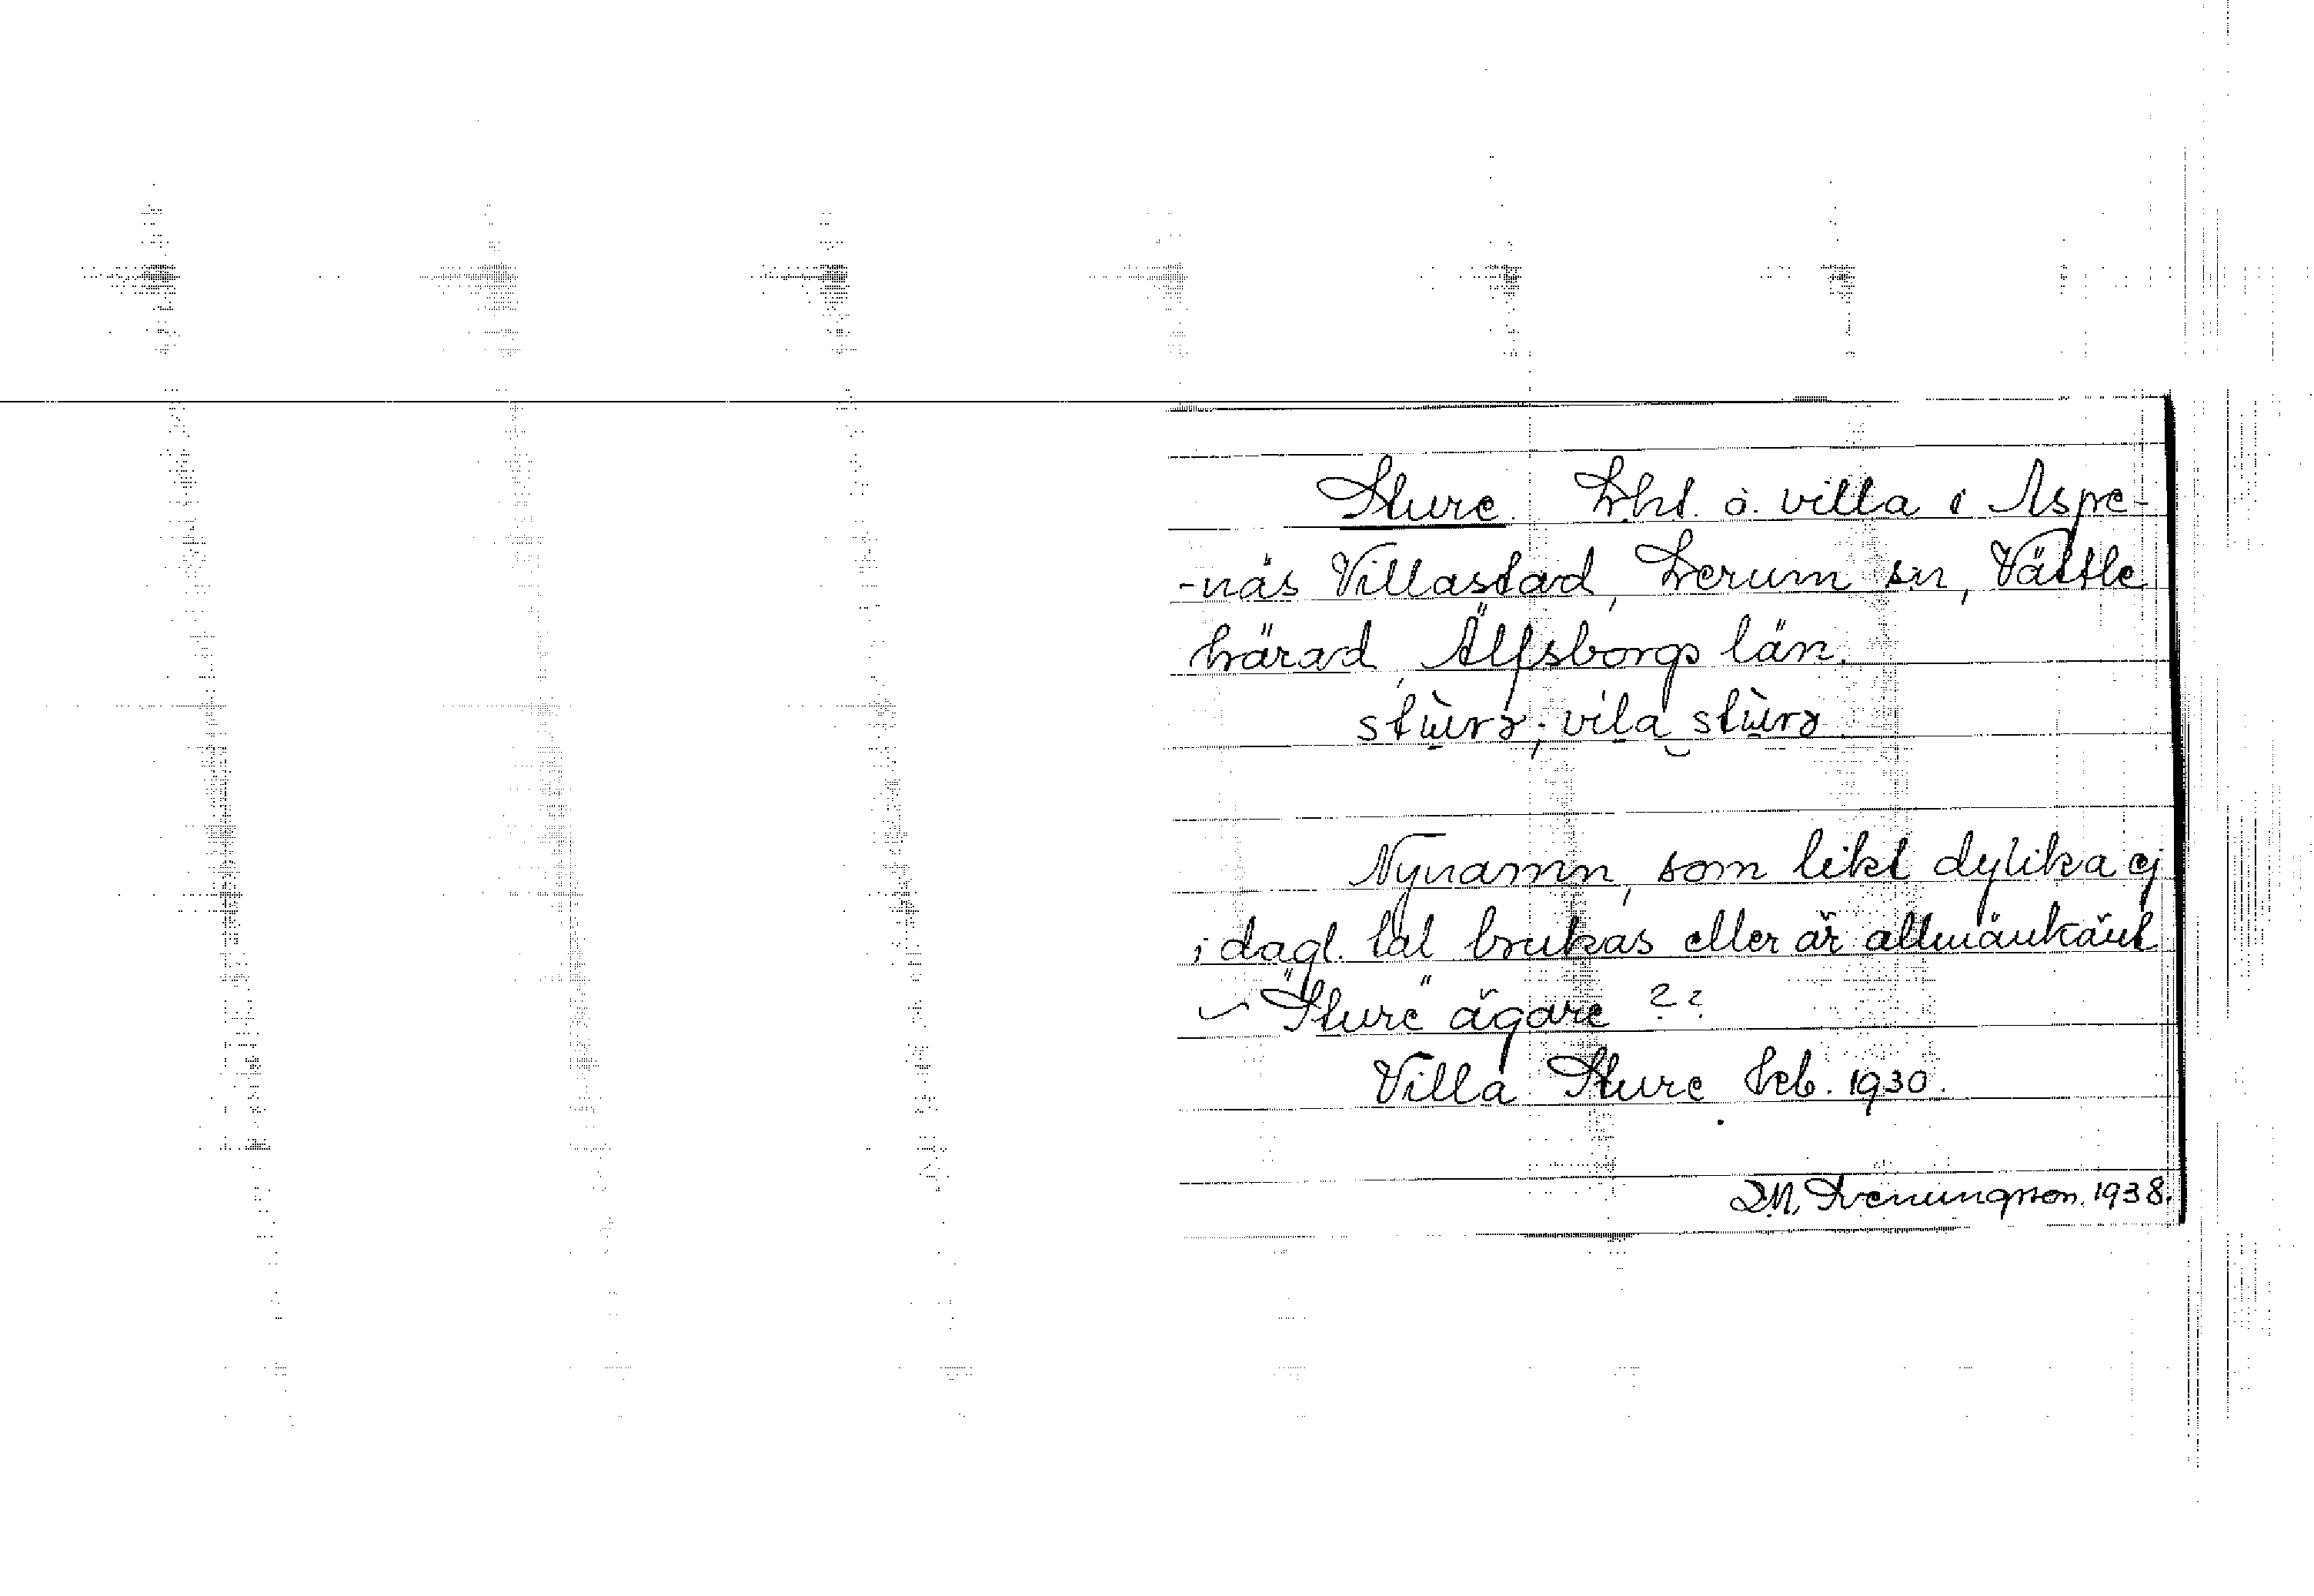 Sture. Lht. o. villa i Aspe-
-näs Villastad, Lerum sn, Vättle
härad, Älfsborgs län.
stùrə; vila stùrə
Nynamn, som likt dylika ej
i dagl. tal brukas eller är allmänkänt
"Sture" ägare ??
Villa Sture Leb. 1930.
D.M. Svenungsson. 1938.